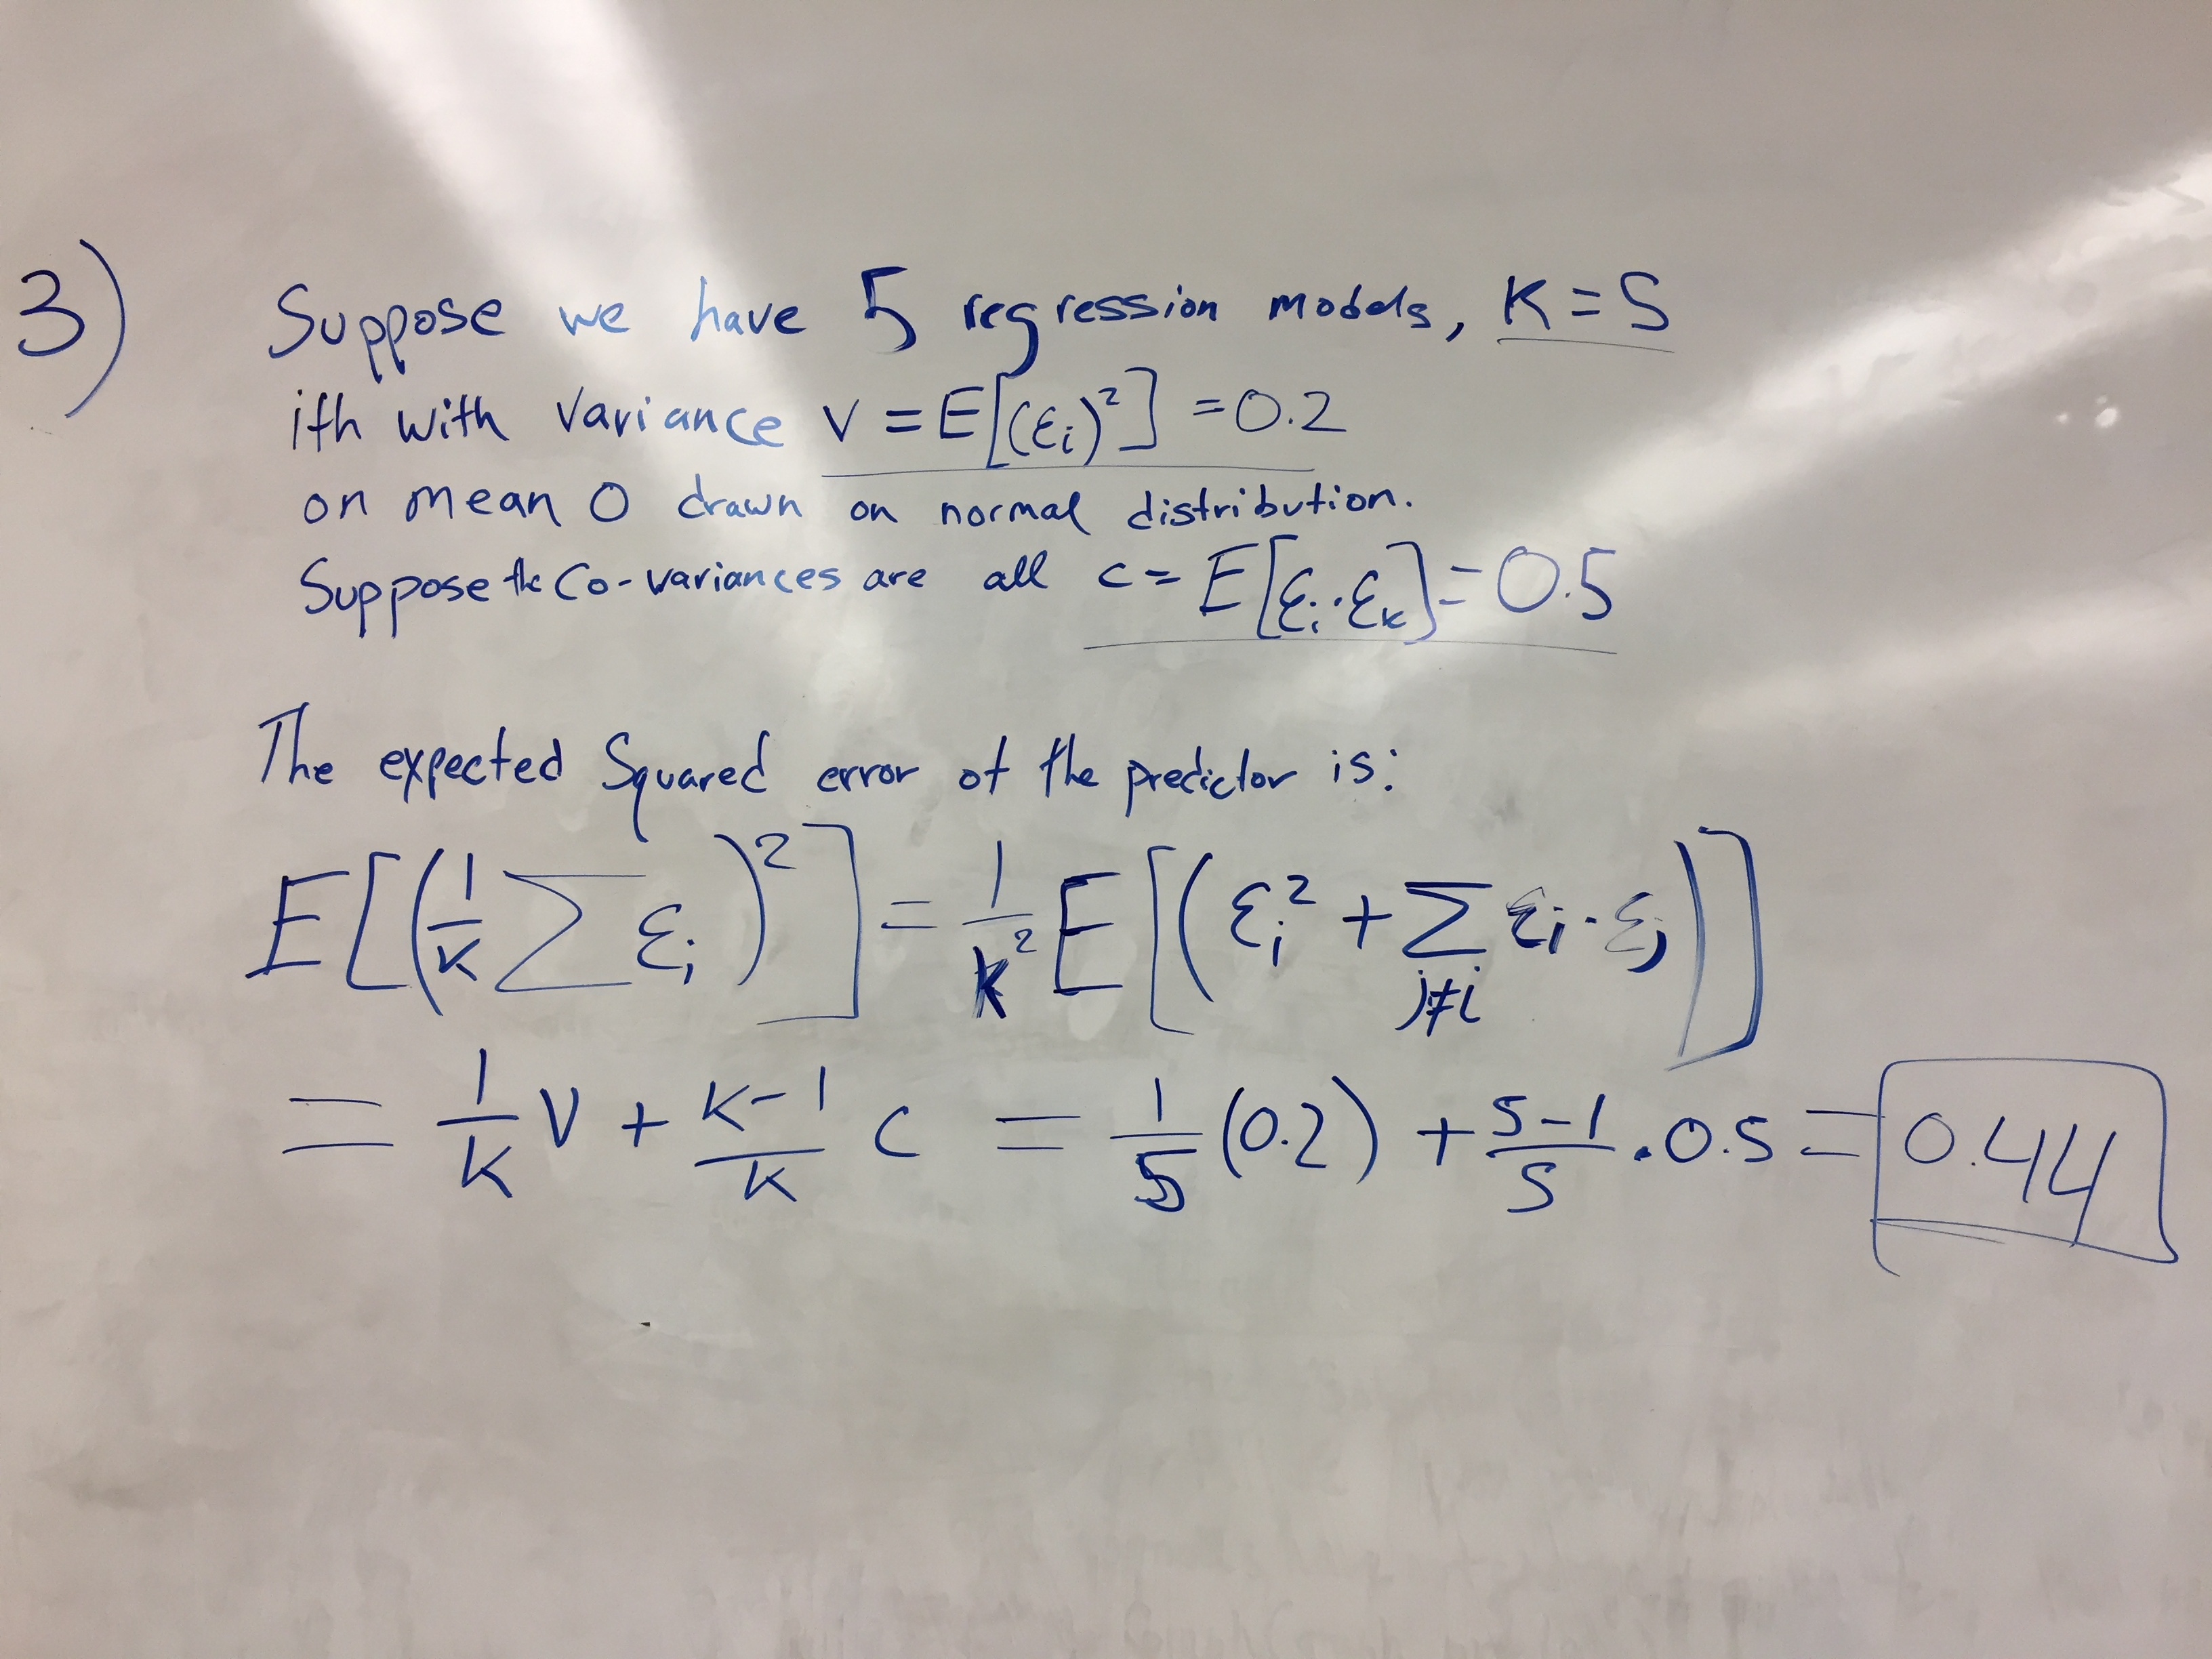 3) Suppose we have 5 regression models, K = 5
ith with variance v = E[(ε_i)²] = 0.2
on mean 0 drawn on normal distribution.
Suppose the Co-variances are all c = E[ε_i·ε_k] = 0.5
The expected Squared error of the predictor is:
E[(1/K Σ ε_i)²] = 1/K² E[(ε_i² + Σ_{j≠i} ε_i·ε_j)]
= 1/K V + K-1/K C = 1/5 (0.2) + 5-1/5 · 0.5 = 0.44